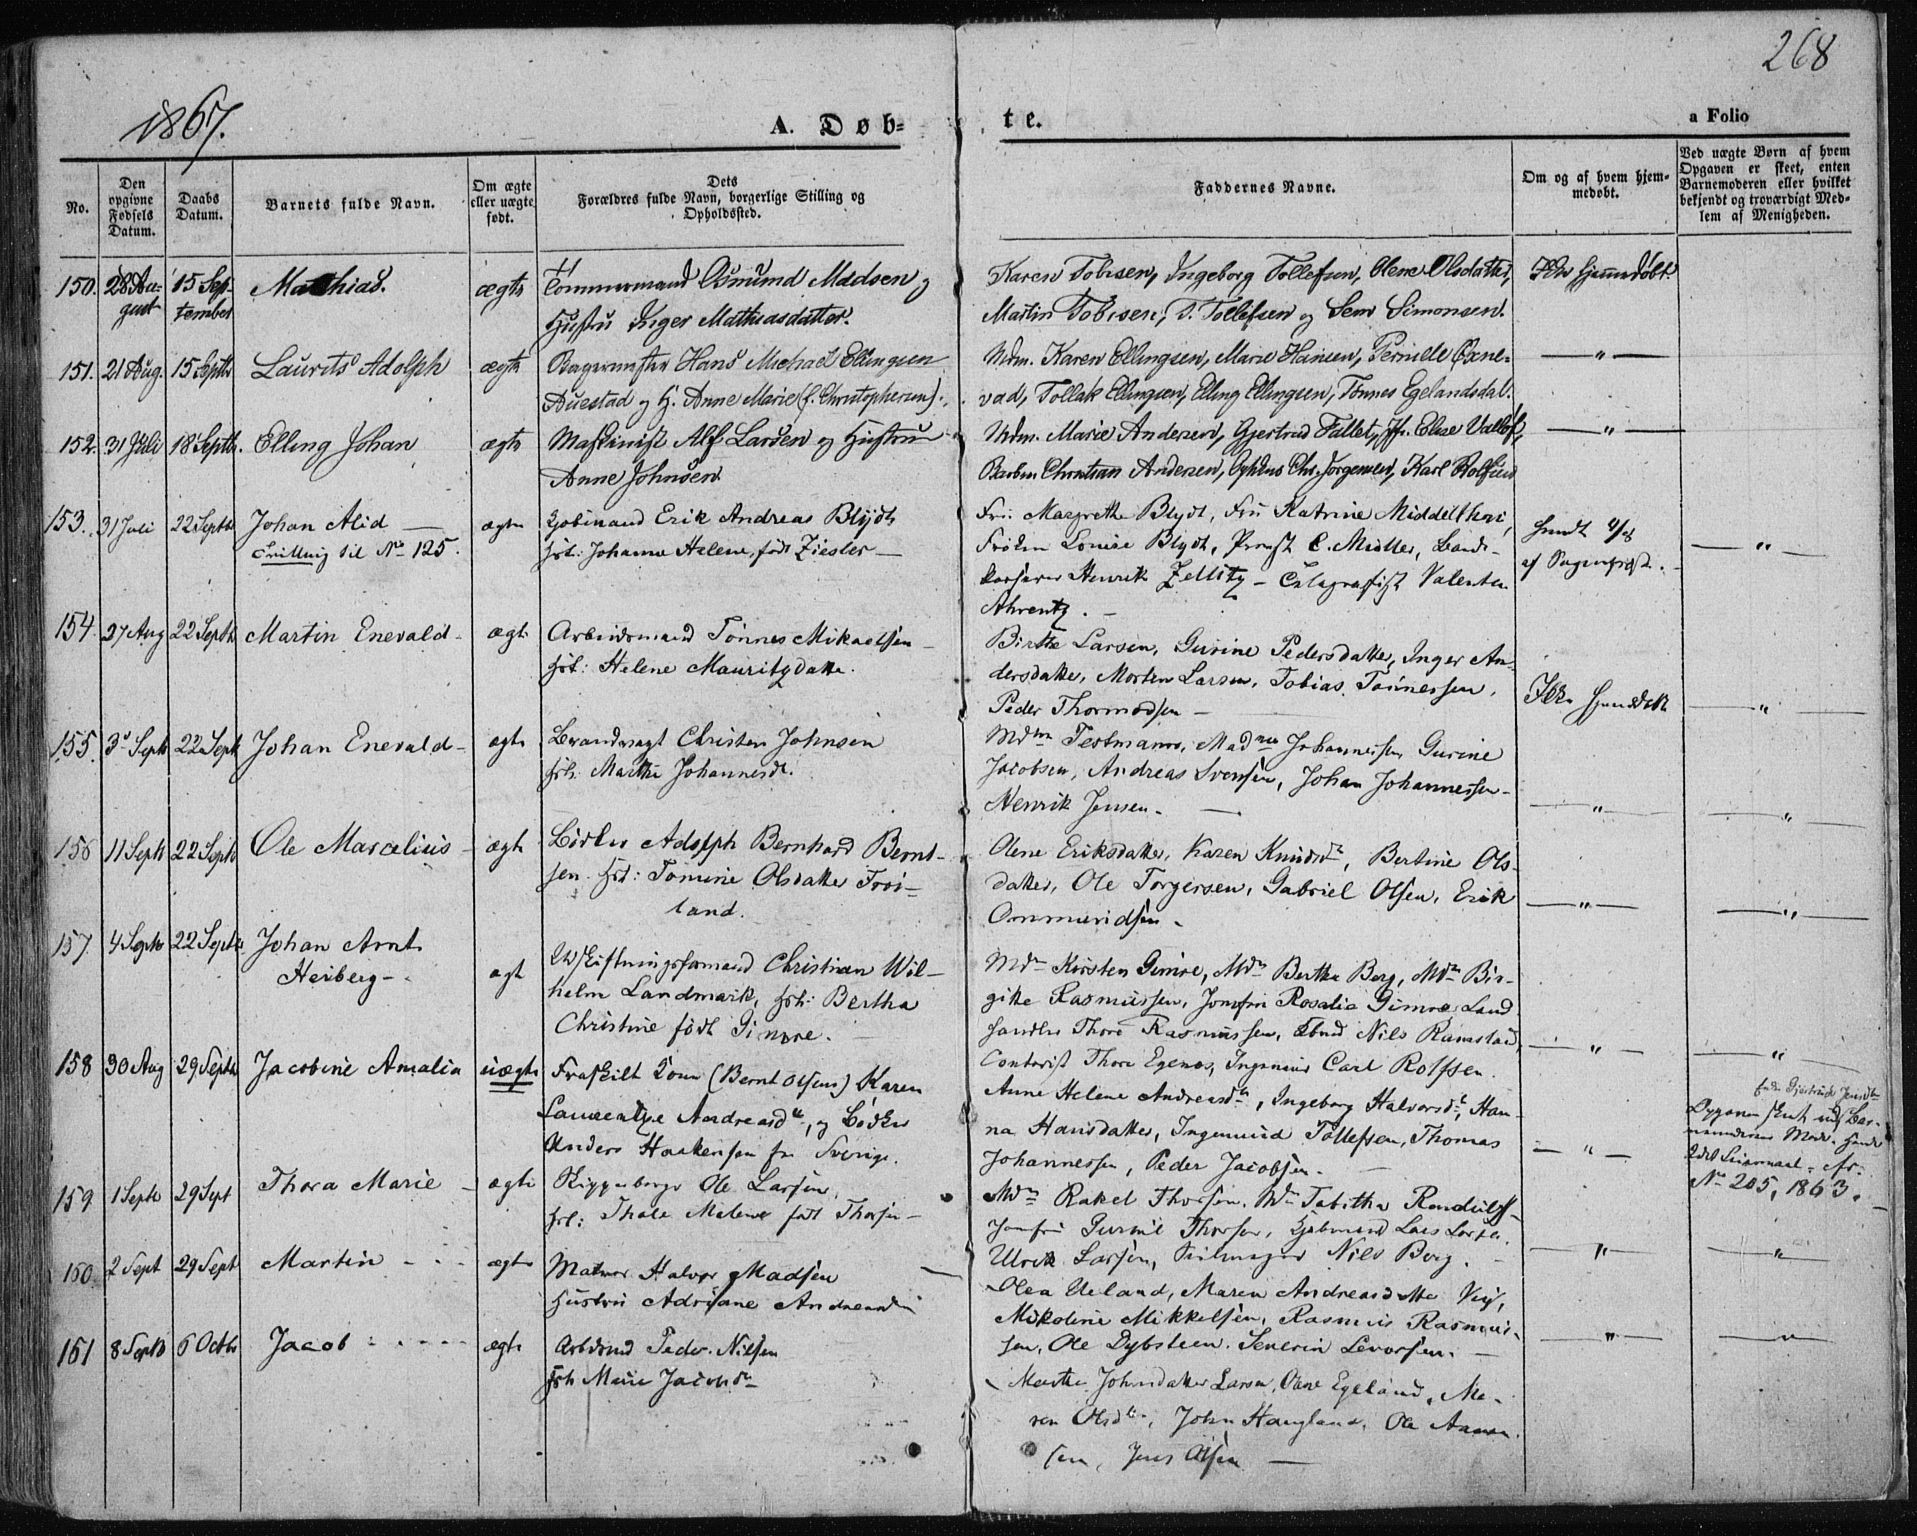 268
1867.
A. Døb-
te.
a Folio
No.
Den opgivne Fødsels Datum.
Daabs Datum.
Barnets fulde Navn.
Om ægte eller uægte født.
Dets Forældres fulde Navn, borgerlige Stilling og Opholdssted.
Faddernes Navne.
Om og af hvem hjem-medøbt.
Ved uægte Børn af hvem Opgaven er skeet, enten Barnemoderen eller hvilket bekjendt og troværdigt Med-lem af Menigheden.
150. 28 Au- 15 Sep- Mathias. ægte Tømmermand Osmund Madsen og
gust tember Hustru Inger Mathiasdatter.
Karen Tobisen, Ingeborg Tollefsen, Olene Olsdatter, Ikke hjemmedøbt.
Martin Tobisen, T. Tollefsen og Sem Simonsen.
151. 21 Aug. 15 Septb Laurits Adolph ægte Bagermester Hans Michael Ellingsen
Auestad og H. Anne Marie (f. Christophersen).
Mdm. Karen Ellingsen, Marie Hansen, Pernille Oxne- — " —
vad, Tollak Ellingsen, Elling Ellingsen, Tönnes Egelandsdal.
152. 31 Juli 18 Septb. Elling Johan ægte Maskinist Alf Larsen og Hustru
Anne Johnsen
Mdm. Marie Andersen, Gjertrud Fallet, Jfr. Elise — " —
Christian Andersen, Chr. Jørgensen, Karl Rolfsen
153. 31 Juli 22 Septb Johan Alid — ægte Kjøbmand Erik Andreas Blydt
Tvilling til No 125. hst: Johanne Helene, født Ziesler —
Fru Margrethe Blydt, Fru Katrine Middelthon,
Frøken Louise Blydt, Provst C. Müller, — " —
Henrik Zetlitz — Telegrafist Valentin
Ahrentz. —
154. 27 Aug 22 Septb Martin Enevald — ægte Arbeidsmand Tönnes Mikaelsen —
hst: Helene Mauritzdatter.
Birthe Larsen, Gurine Pedersdatter, Inger An-
dersdatter, Morten Larsen, Tobias Tönnessen,
Peder Thormodsen — Ikke hjemmedøbt — " —
155. 3 Septb 22 Septb Johan Enevald — ægte Brandvagt Christen Johnsen
hst: Marthe Johannesd.
Mdm Testmann, Madme Johannessen, Gurine
Jacobsen, Andreas Svensen, Johan Johannessen —
Henrik Jensen. — — " — — " —
156 11 Septb 22 Septb Ole Marcelius — ægte Bødker Adolph Bernhard Bernt-
sen hst: Tomine Olsdatter Froi-
land.
Olene Eriksdatter, Karen Knudsd, Bertine Ols-
datter, Ole Torgersen, Gabriel Olsen, Erik — " — — " —
Ommundsen —
157. 4 Septb 22 Septb Johan Arnt ægte Udskiftningsformand Christian Wil-
Heiberg — helm Landmark, hst: Bertha
Christine født Gimre. —
Mdm Kirsten Gimre, Mdm Bertha Berg, Mdm Bir-
gitte Rasmussen, Jomfru Rosalia Gimre, Land
handler Thore Rasmussen, Nils Ramstad,
Contorist Thore Egenes, Ingeniør Carl Rolfsen. — " — — " —
158 30 Aug 29 Septb Jacobine Amalia uægte Fraskilt Kone (Bernt Olsens) Karen
Laurentze Andreasd, og Bødker
Anders Haakensen fra Sverige.
Anne Helene Andreasd, Ingeborg Halvorsd, Han-
na Hansdatter, Ingemund Tollefsen, Thomas
Johannessen, Peder Jacobsen. — — " —
Gjertrude Jensd
Opgaven skeet ved Bar-
nemoderens Moder.
2det Leiermaal.
No 205, 1863.
159 1 Septb 29 Sept Thora Marie — ægte Ole Larsen,
hst: Thale Malene født Thorsen —
Mdm Rakel Thorsen, Mdm Tabitha
Jomfru Thorsen, Kjøbmand Lars Larsen,
Ulrik Larsen, Nils Berg. — — " — — " —
160 2 Sept 29 Sept Martin ægte Matros Halvor Madsen
Hustru Adriane Andreasd
Olea Ueland, Maren Andreasdatter
Mikoline Mikkelsen, Rasmus Rasmus-
sen, Ole Dybsteen, Severin Levorsen. — " — — " —
161 8 Septb 6 Octb Jacob ægte Arbdmd Peder Nilsen
hst Marie Jacobsd
Marthe Johnsdatter Larsen, Oline Egeland, Ma-
ren Olsd, John Haugland, Ole Aanen-
sen, Jens Olsen —